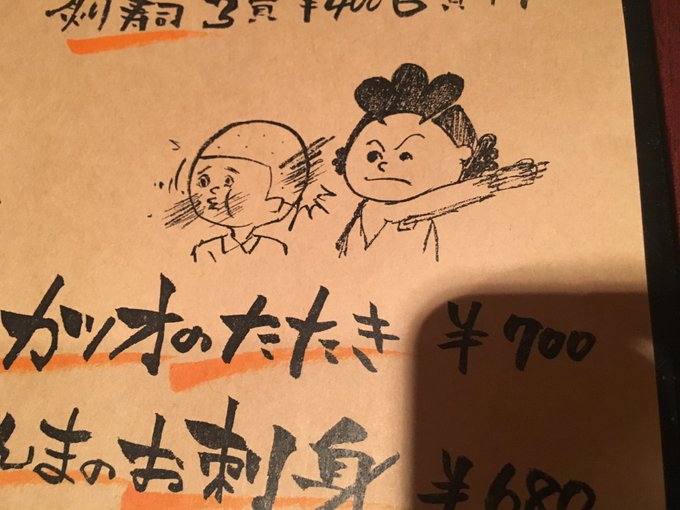 寿司 3貫 ¥400 6貫
カツオのたたき ¥700
んまのお刺身 ¥680